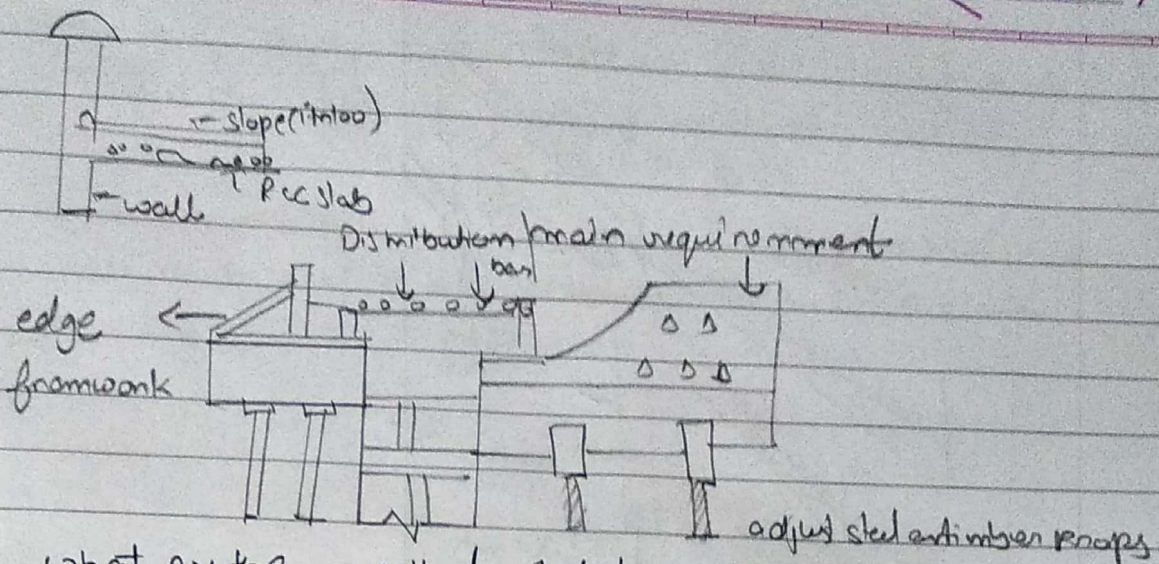 slope(1in100)
RCC slab
wall
Distribution main requirnomment
bar
edge
framwork
adjust steel or timber props
what are the